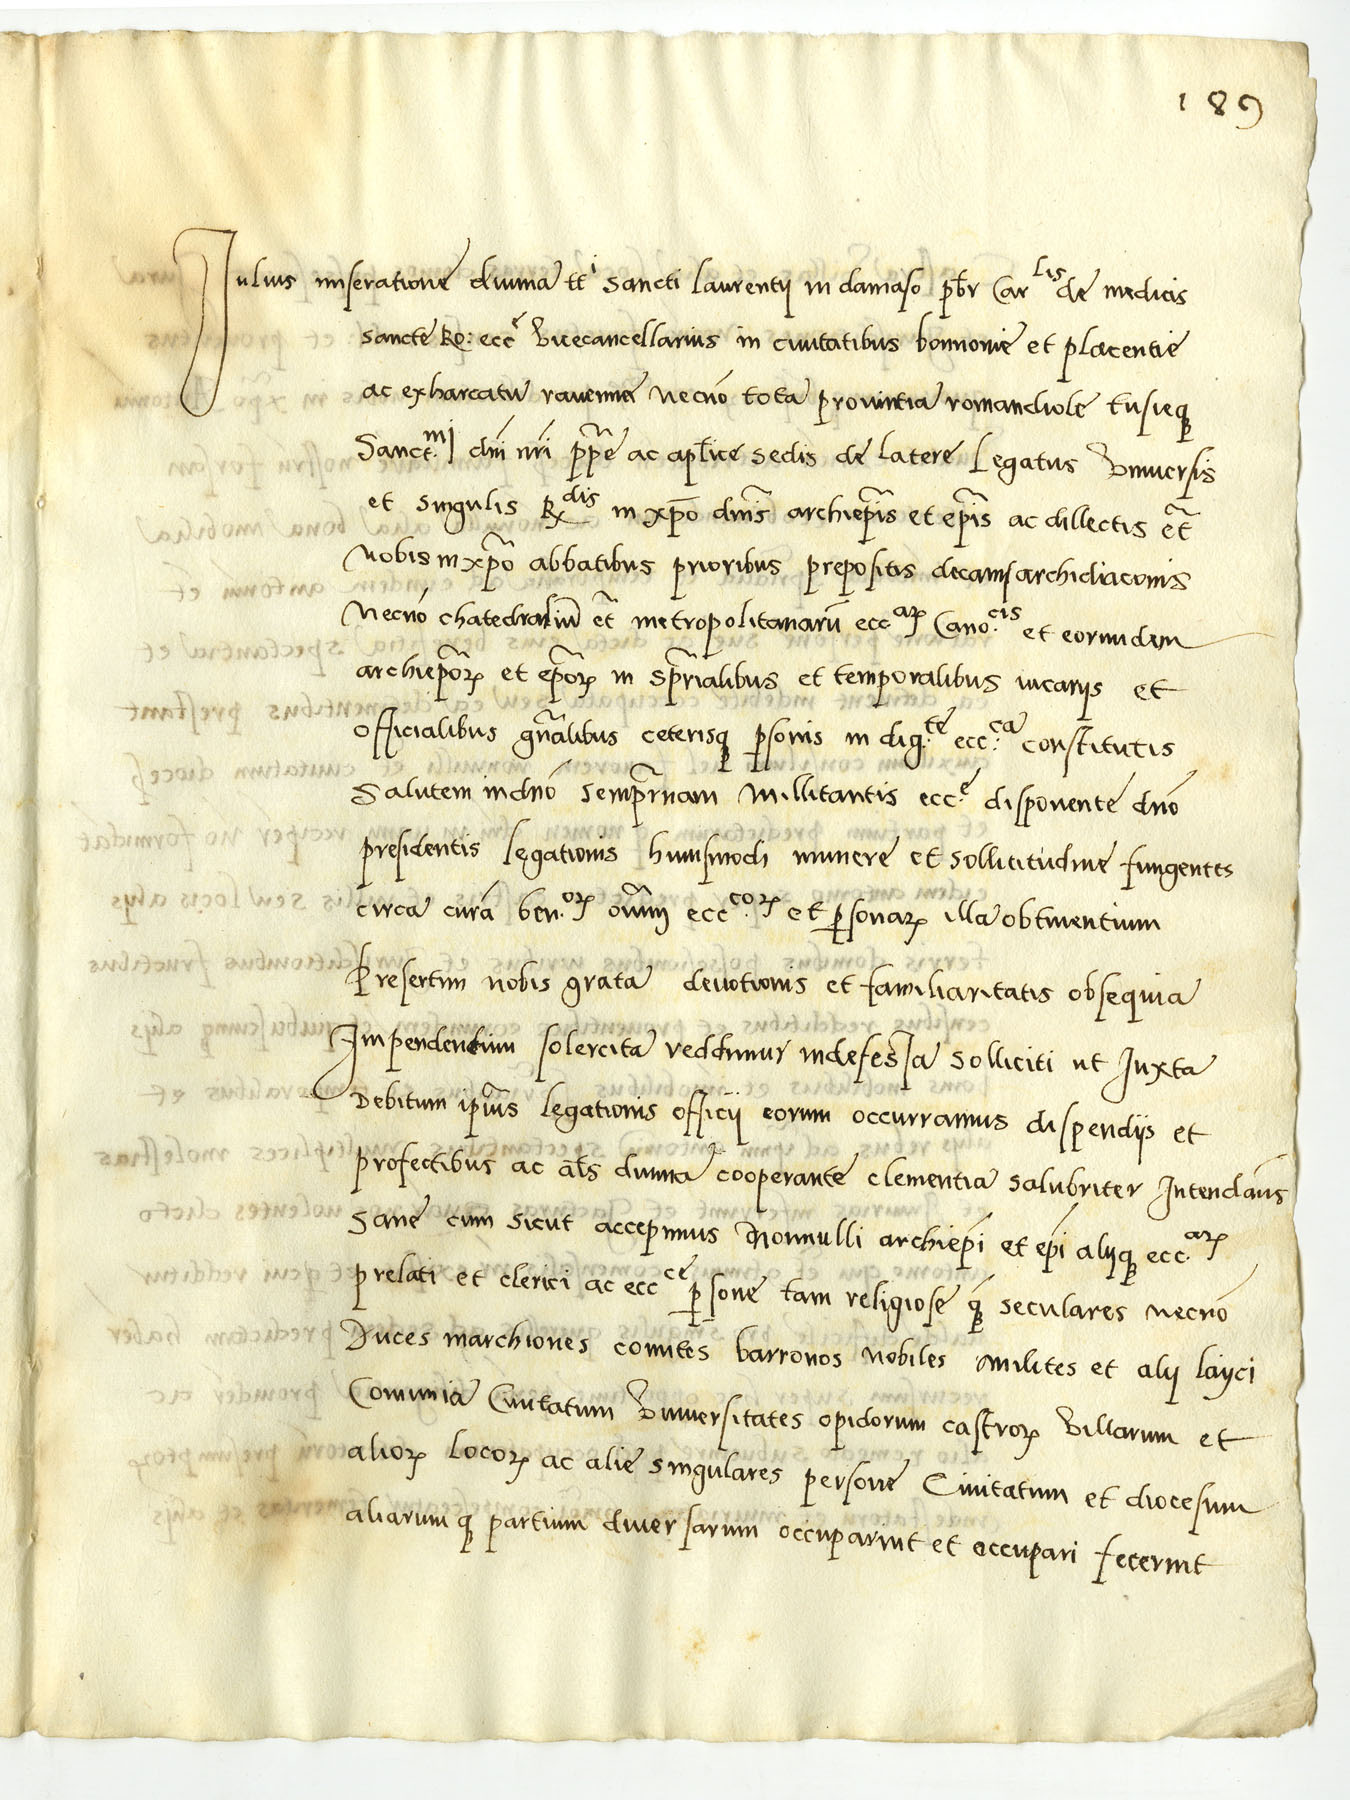 189
Julius miseratione divina tt.i Sancti laurentij in damaso pbr Car.lis de medicis
sancte Ro: ecc.e Vicecancellarius in civitatibus bonnonie et placentie
ac exharcatu ravenne Necnō tota provintia romandiole tusieq
Sanct.mi dni nri ppe ac aplice sedis de latere Legatus Universis
et singulis R.dis in xpo dnis archiepis et epis ac dillectis et
Nobis in xpo abbatibus prioribus prepositis decanis archidiaconis
Necnō chatedraliū et metropolitanarū ecc.arȝ Cano.cis et eorumdem
archieporȝ et eporȝ in sprialibus et temporalibus vicariis et
officialibus gnalibus ceterisq psonis in dig.te ecc.ca constitutis
Salutem in dnō sempernam Millitantis ecc.e disponente dnō
presidentis legationis huiusmodi munere et sollicitudine fungentes
circa curā ben.orȝ oium ecc.corȝ et psonarȝ illa obtinentium
Presertim nobis grata devotionis et familiaritatis obsequia
Impendentium solercita reddimur indefessa solliciti ut Juxta
Debitum ipius legationis officij eorum occurramus dispendijs et
profectibus ac aliis divina cooperante clementia salubriter Intendams
Sane cum sicut accepimus Nonnulli archiepi et epi alijq ecc.arȝ
prelati et clerici ac ecc.ce psone tam religiose q seculares necnō
Duces marchiones comites barronos nobiles Milites et alij layci
Comunia Civitatum Universitates opidorum castrorȝ Villarum et
aliorȝ locorȝ ac alie singulares persone Civitatum et diocesum
aliarum q partium diversarum occuparint et occupari fecerint